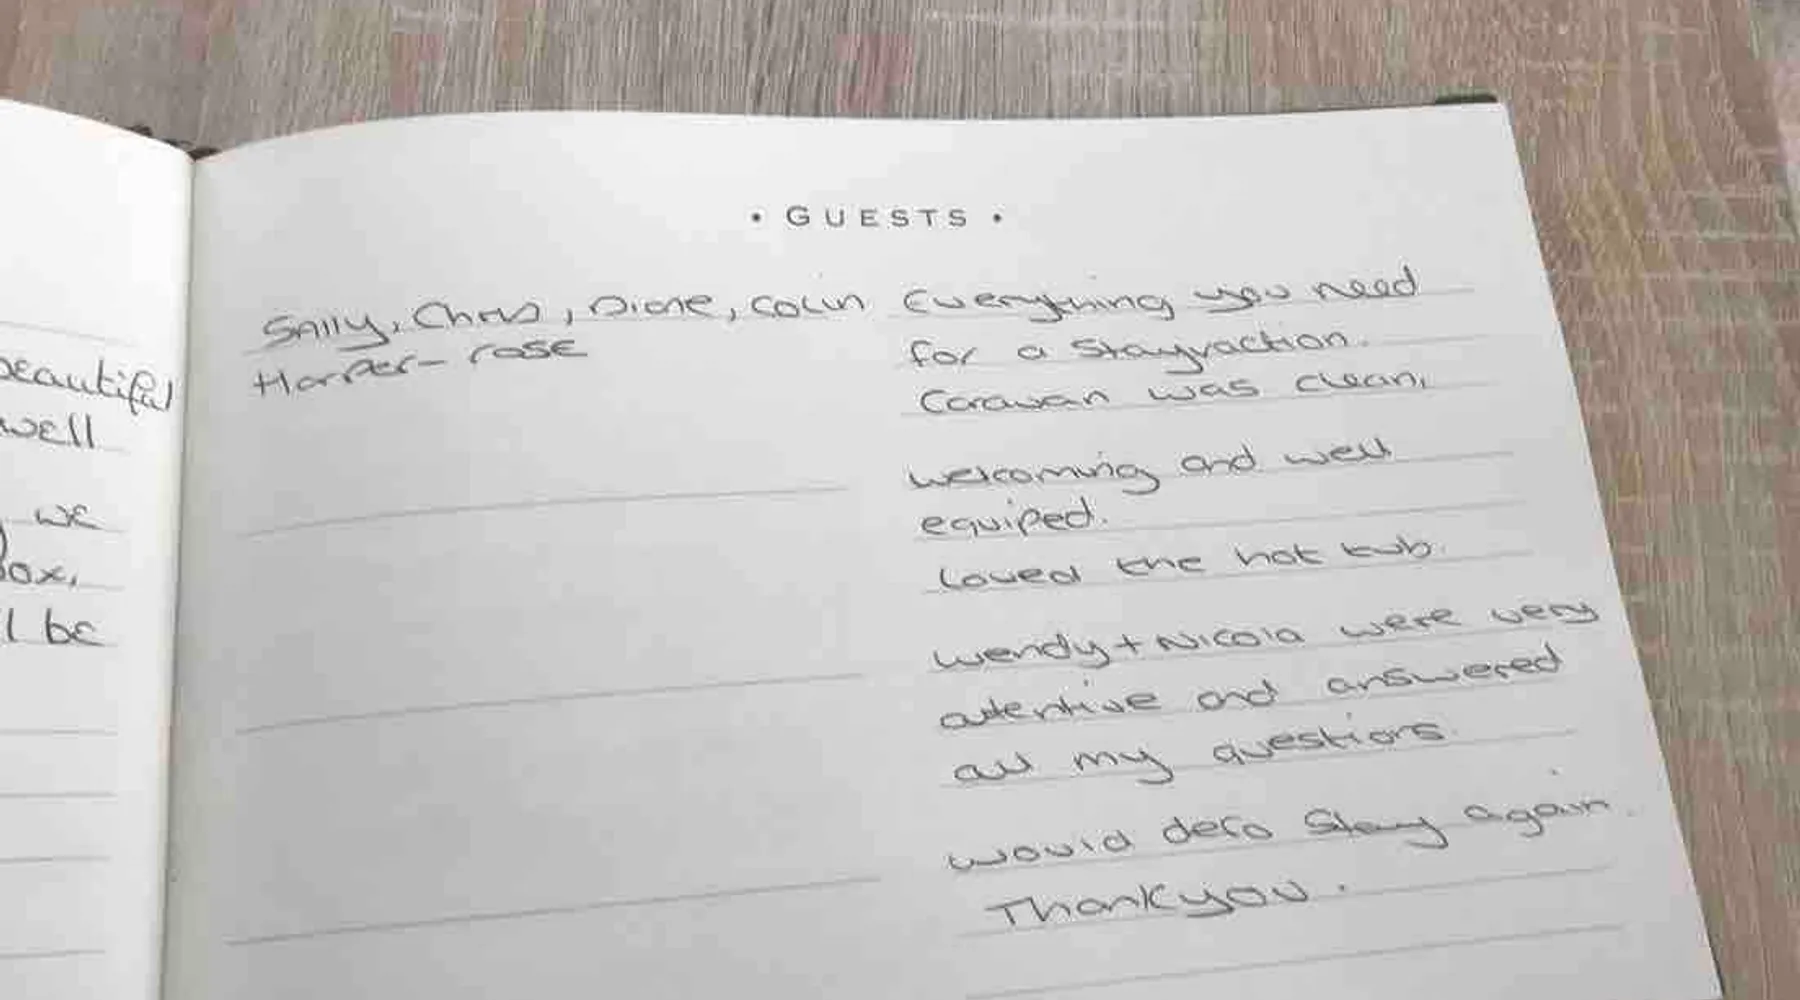 beautiful
well
we
ox,
l be
• GUESTS •
Sally, Chris, Diane, Colin
Harper-rose
Everything you need
for a Stayvaction.
Caravan was clean,
welcoming and well
equiped.
Loved the hot tub.
Wendy + Nicola were very
attentive and answered
all my questions.
would defo Stay again.
Thankyou.